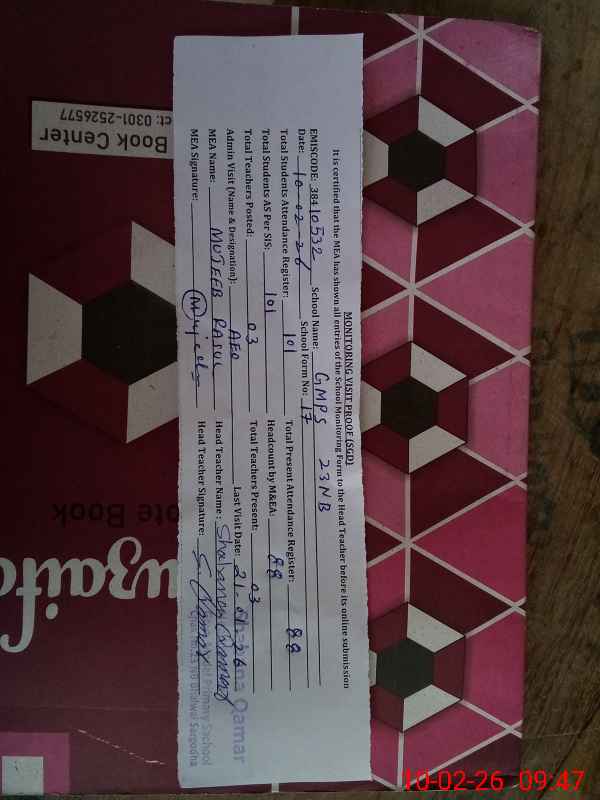 MONITORING VISIT PROOF (SGD)
It is certified that the MEA has shown all entries of the School Monitoring Form to the Head Teacher before its online submission
EMISCODE: 38410532, School Name: GMPS 23NB
Date: 10-02-26 School Form No: 17
Total Students Attendance Register: 101 Total Present Attendance Register: 88
Total Students AS Per SIS: 101 Headcount by M&EA: 88
Total Teachers Posted: 03 Total Teachers Present: 03
Admin Visit (Name & Designation): AEO Last Visit Date: 21-01-26
MEA Name: MUJEEB Head Teacher Name: Shabana Qamar
MEA Signature: Mujeeb Head Teacher Signature: S. Qamar
Qamar
Primary School
23 NB Bhalwal Sargodha
Book Center
ct: 0301-2526577
ote Book
uzaifa
10-02-26 09:47